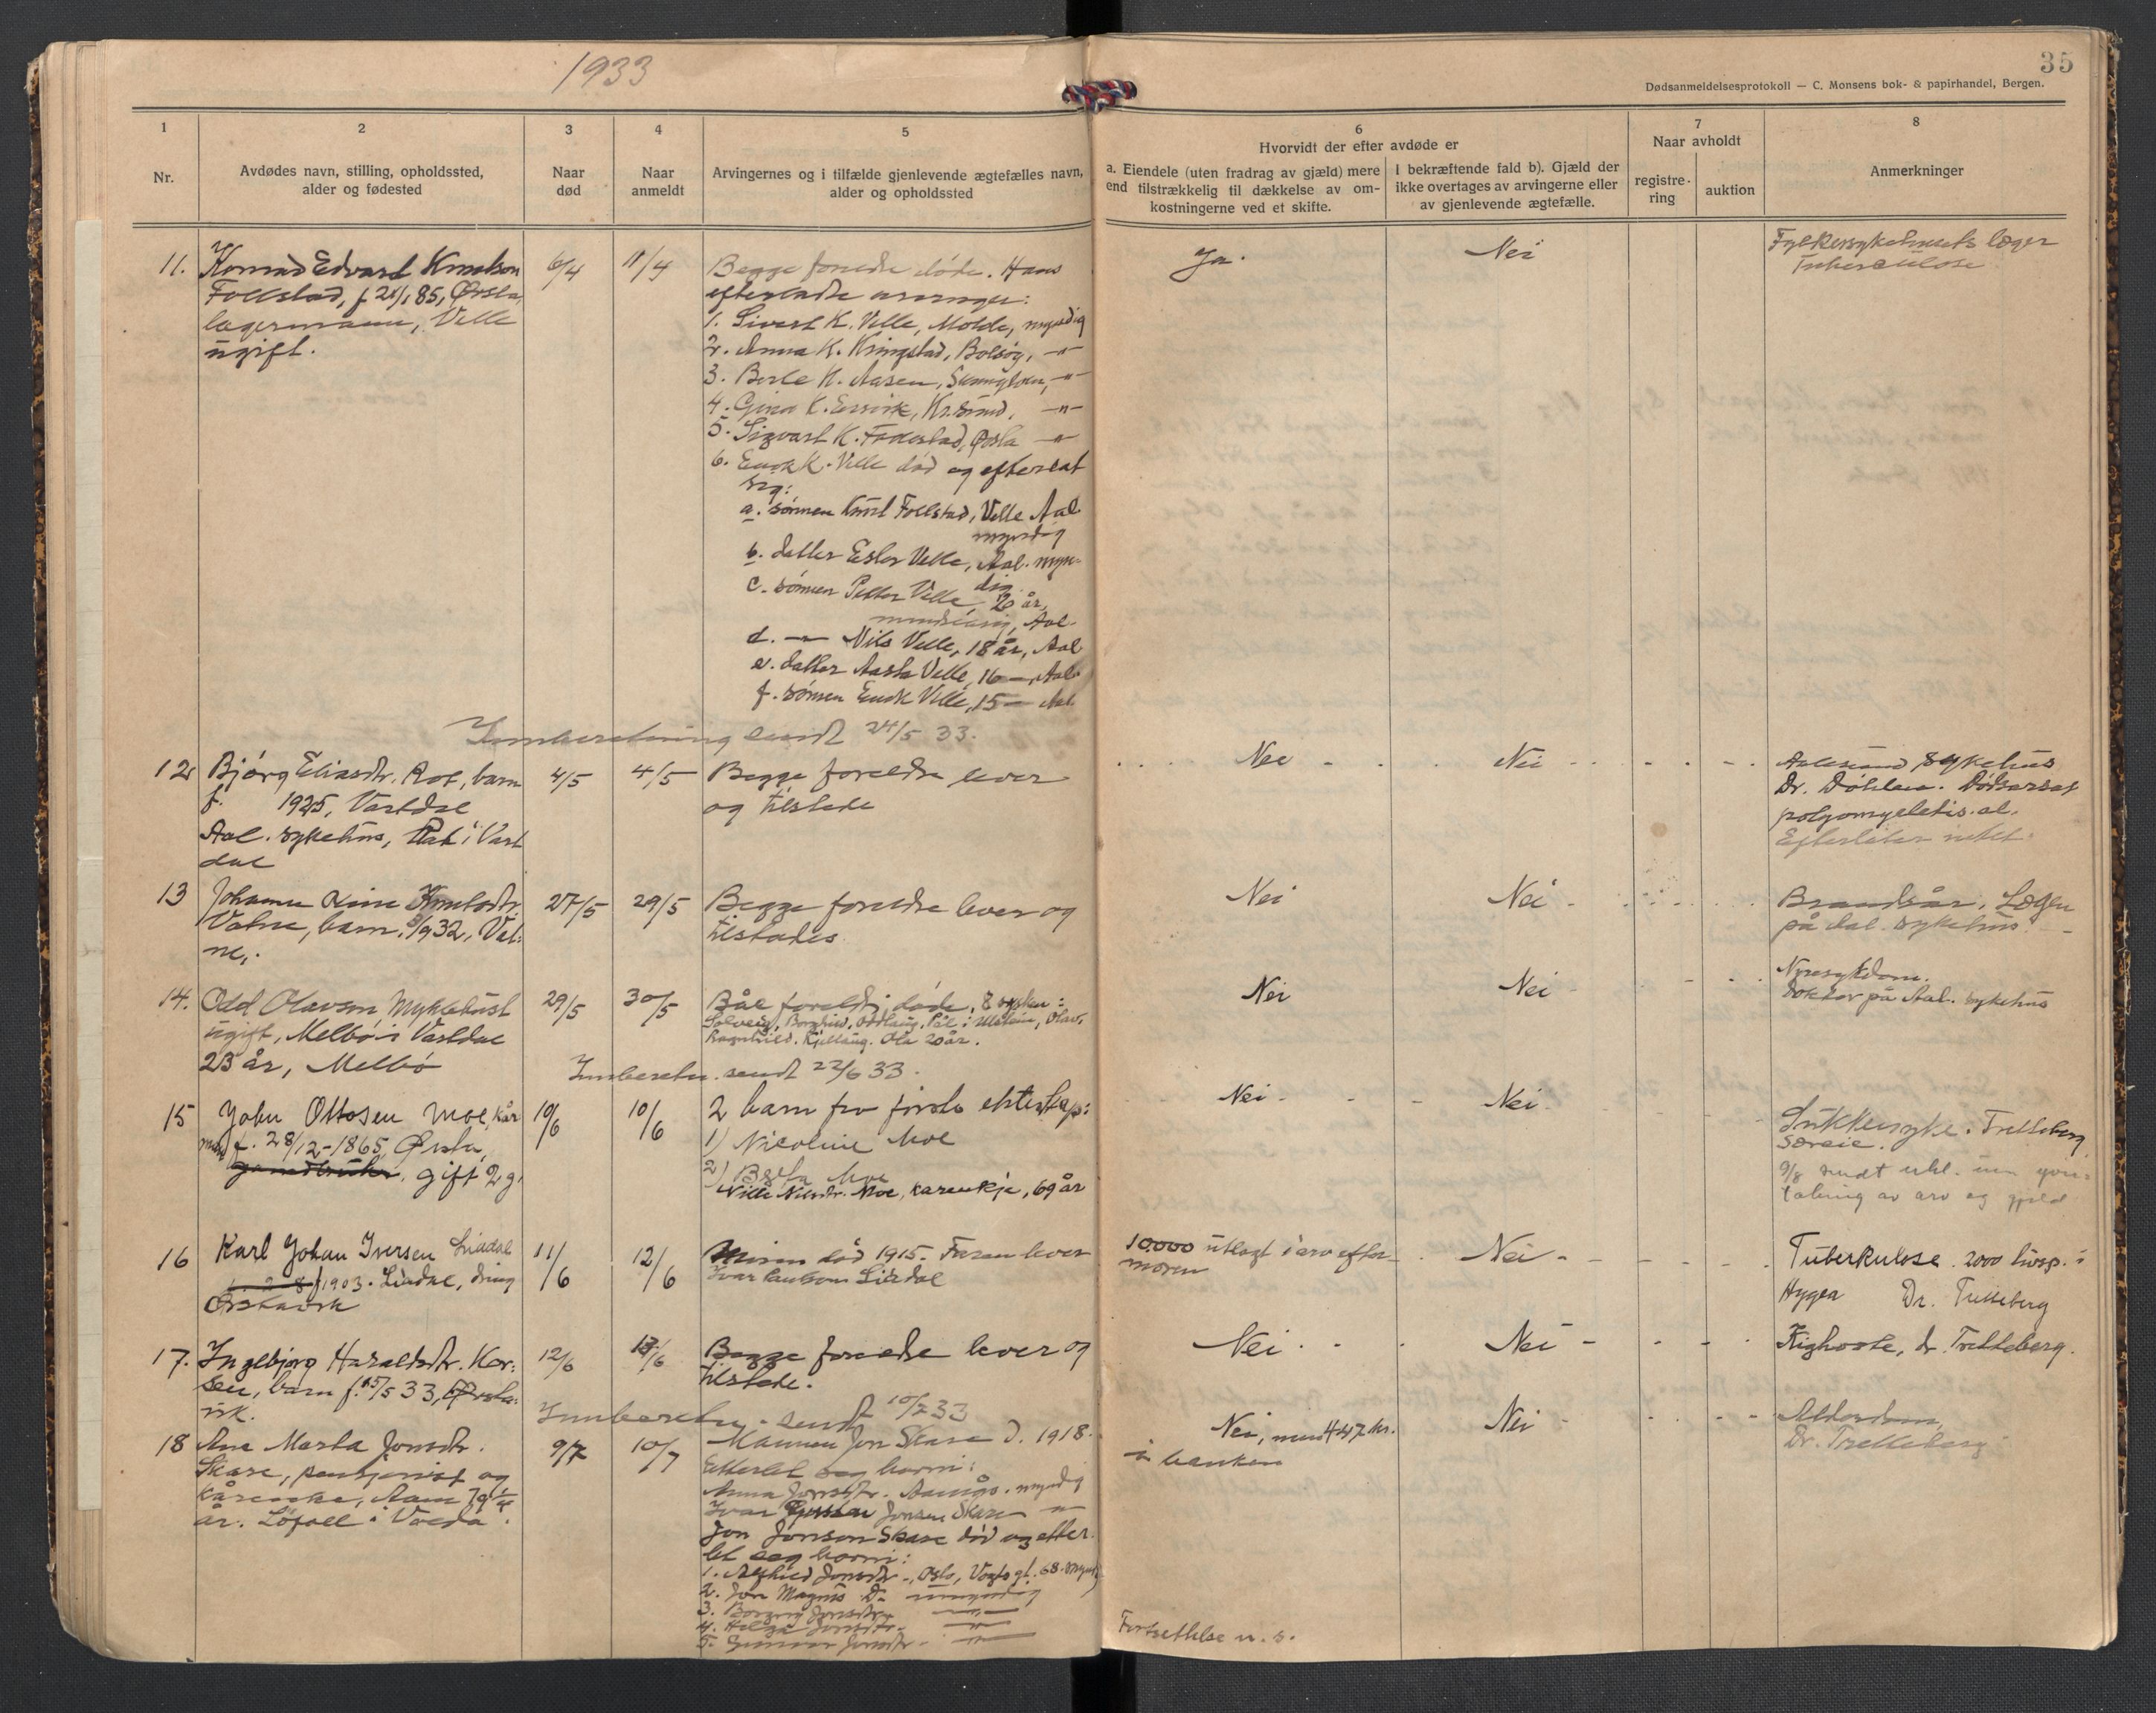 1933
35
Dødsanmeldelsesprotokoll — C. Monsens bok- & papirhandel, Bergen.
1
2
3
4
5
6
7
8
Nr.
Avdødes navn, stilling, opholdssted,
alder og fødested
Naar
død
Naar
anmeldt
Arvingernes og i tilfælde gjenlevende ægtefælles navn,
alder og opholdssted
Hvorvidt der efter avdøde er
a. Eiendele (uten fradrag av gjæld) mere
end tilstrækkelig til dækkelse av om-
kostningerne ved et skifte.
I bekræftende fald b). Gjæld der
ikke overtages av arvingerne eller
av gjenlevende ægtefælle.
Naar avholdt
registre-
ring
auktion
Anmerkninger
11.
Konrad Edvard Knutson
Follestad, f. 85, Ørsta,
lagermann, Velle
ugift.
6/4
11/4
Begge foreldre døde. Hans
efterladte arvinger:
1. Sivert K. Velle, Molde, myndig
2. Anna K. Kringstad, Bolsøy, -"-
3. K. Aasen, -"-
4. Gina K. Kr.sund, -"-
5. Sigvart K. Follestad, Ørsta -"-
6. K. Velle død og efterlat
seg:
a. sønnen Knut Follstad, Velle Aal
myndig
b. datter Ester Velle, Aal. myn-
dig
c. sønnen Petter Velle, 20 år,
mindreårig, Aal.
d. -"- Nils Velle, 18 år, Aal
e. datter Aasta Velle, 16 — Aal.
f. sønnen Velle, 15 — Aal.
Ja.
Nei
Fylkessykehusets læger
Tuberculose
Innberetning sendt 24/5 33.
12
Bjørg Eliasdtr. barn
f. 1925, Vartdal
Aal. sykehus, i Vart
dal
4/5
4/5
Begge foreldre lever
og tilstede
Nei
Nei
Aalesund sykehus
Dr. Døhlen. Dødsårsak
Efterlater intet.
13
Johanne Line Knutsdtr
Vatne, barn, 32, Vat-
ne.
27/5
29/5
Begge foreldre lever og
tilstede
Nei
Nei
Brandsår, Lægen
på Aal. sykehus.
14.
Odd Olavson Myklebust
ugift, Melbø i Vartdal
23 år, Melbø
29/5
30/5
Båe foreldri døde, 8 sysken:
Solveig, Borghild, Oddlaug, Pål i Ulstein, Olav,
Ragnhild, Kjellaug, Ola 20 år.
Nei
Nei
Nyresykdom.
Doktor på Aal. sykehus
Innberetn. sendt 22/6 33.
15
John Ottosen Moe, kår
mand f. 28/12-1865, Ørsta,
gift 2 g.
10/6
10/6
2 barn fra første ekteskap:
1) Nicoline Moe
2) Moe
Nilsdtr. Moe, 69 år
Nei
Nei
Sukkersyke. Trelleberg
9/8 sendt
av arv og gjeld
16
Karl Johan Iversen Liadal
f 1903. Liadal,
Ørstavik
11/6
12/6
Moren død 1915. Faren lever
Ivar Liadal
10.000 utlagt i arv efter
moren
Nei
Tuberkulose. 2000 i
Hygea Dr. Trelleberg
17.
Ingebjørg Haraldsdtr. Kor-
sen, barn f. 15/5 33, Ørsta-
vik.
12/6
13/6
Begge foreldre lever og
tilstede.
Nei
Nei
Kighoste, dr Trelleberg.
Innberetn. sendt 10/7 33
18
Ane Marta Jonsdtr.
Skare, pensjonist og
Aam 79
år. i Volda.
9/7
10/7
Mannen Jon Skare d. 1918.
Etterlet seg borni:
Anna Jonsdtr. myndig
Ivar Jonsen Skare -"-
Jon Jonson Skare død og etter-
let seg borni:
1. Jonsdtr -, Oslo, Vogts gt. 68. myndig
2. Jon Magnus Do umyndig
3. Jonsdtr. -"-
4. Helga Jonsdtr. -"-
5. Gunvor Jonsdtr. -"-
Nei, men 447 kr.
i banken
Nei
Alderdom,
Dr. Trelleberg
Fortsettelse n. s.